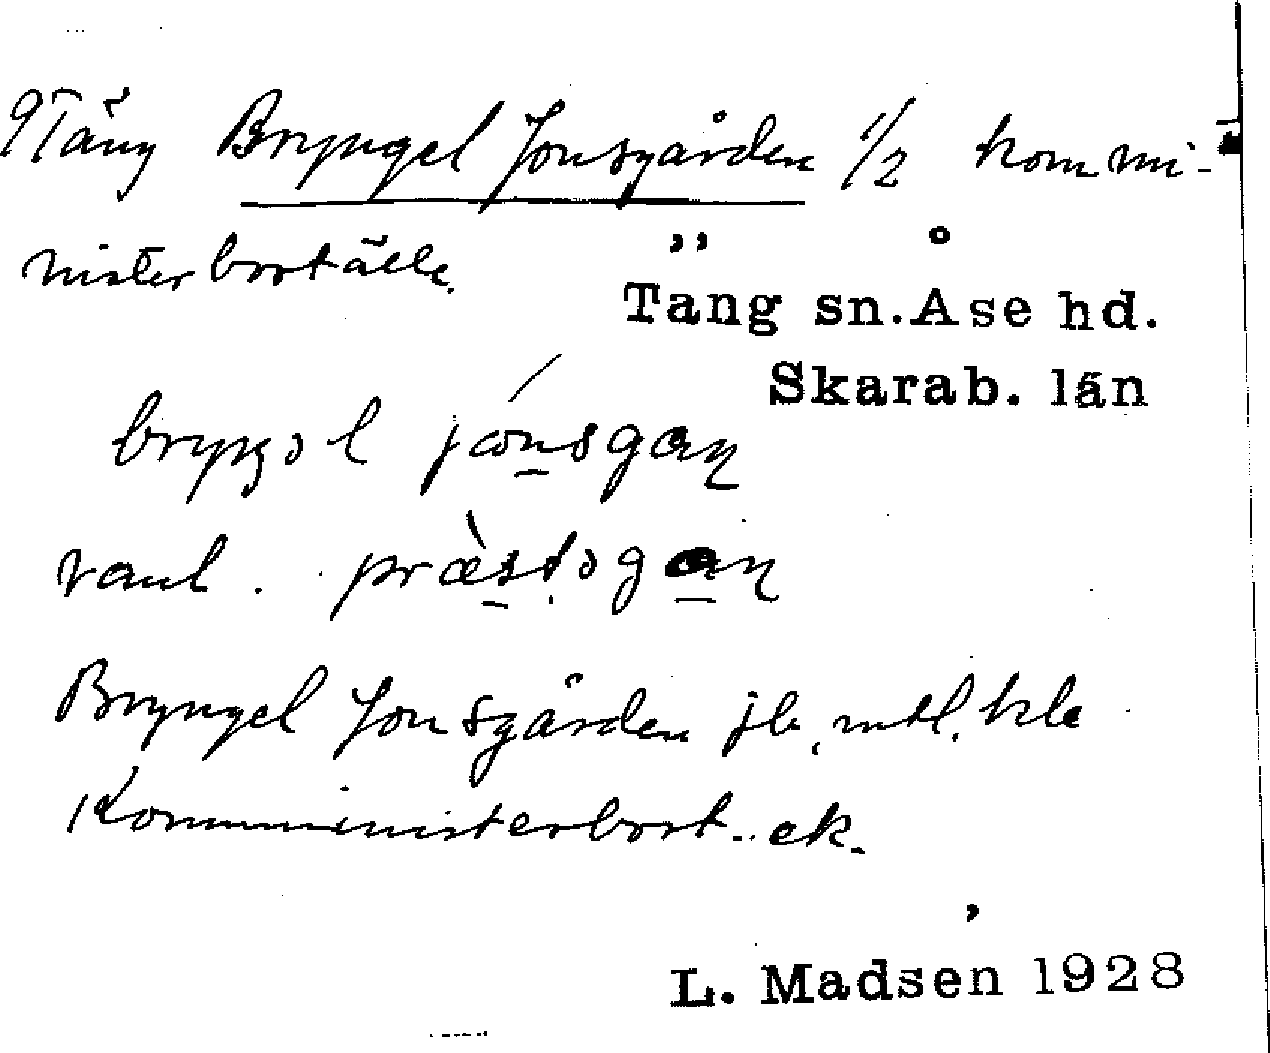 Täng Bryngel Jonsgården 1/2 kommi-
nisterboställe.
Täng sn. Åse hd.
Skarab. län
bryŋəl jɷ́nsgaɳ
vanl. præ̀stəgaɳ
Bryngel Jonsgården jb, mtl, hle
Komministerbost. ek.
L. Madsen 1928